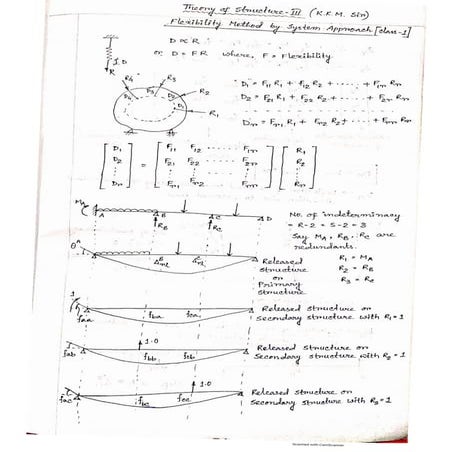 Theory of Structure-III (K.K.M. Sir)
Flexibility Method by System Approach [class-1]
D ∝ R
or, D = FR where, F = Flexibility
D₁ = F₁₁ R₁ + F₁₂ R₂ + .... + F₁n Rn
D₂ = F₂₁ R₁ + F₂₂ R₂ + ... + F₂n Rn
Dn = Fn₁ R₁ + Fn₂ R₂ + .... + Fnn Rn
1, D
R
R₄ R₃ R₂ R₁
D₁ F₁₁ F₁₂ F₁n R₁
D₂ = F₂₁ F₂₂ F₂n R₂
Dn Fn₁ Fn₂ Fnn Rn
MA A B C D
RB RC
No. of indeterminacy
= R-2 = 5-2 = 3
Say MA, RB, RC are
redundants.
R₁ = MA
R₂ = RB
R₃ = RC
θA
Released
structure
or
Primary
structure
1
faa fba fca
Released structure or
Secondary structure with R₁ = 1
1.0
fab fbb fcb
Released structure or
Secondary structure with R₂ = 1
1.0
fac fbc fcc
Released structure or
Secondary structure with R₃ = 1
Scanned with CamScanner